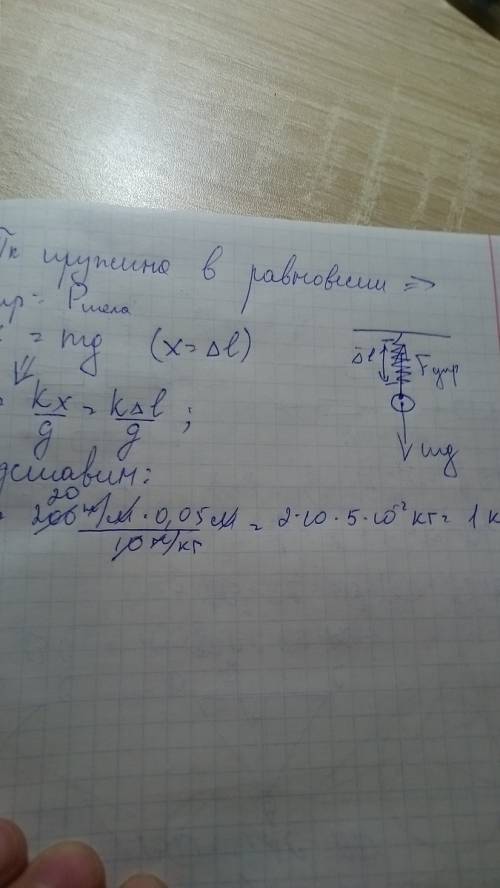 Тк пружина в равновесии =>
упр = Pтела
x = mg (x = Δl)
= kx/g = kΔl/g ;
дставим:
= 200 20 н/м · 0,05 м / 10 н/кг = 2·10·5·10⁻² кг = 1 к
Δl Fупр
mg